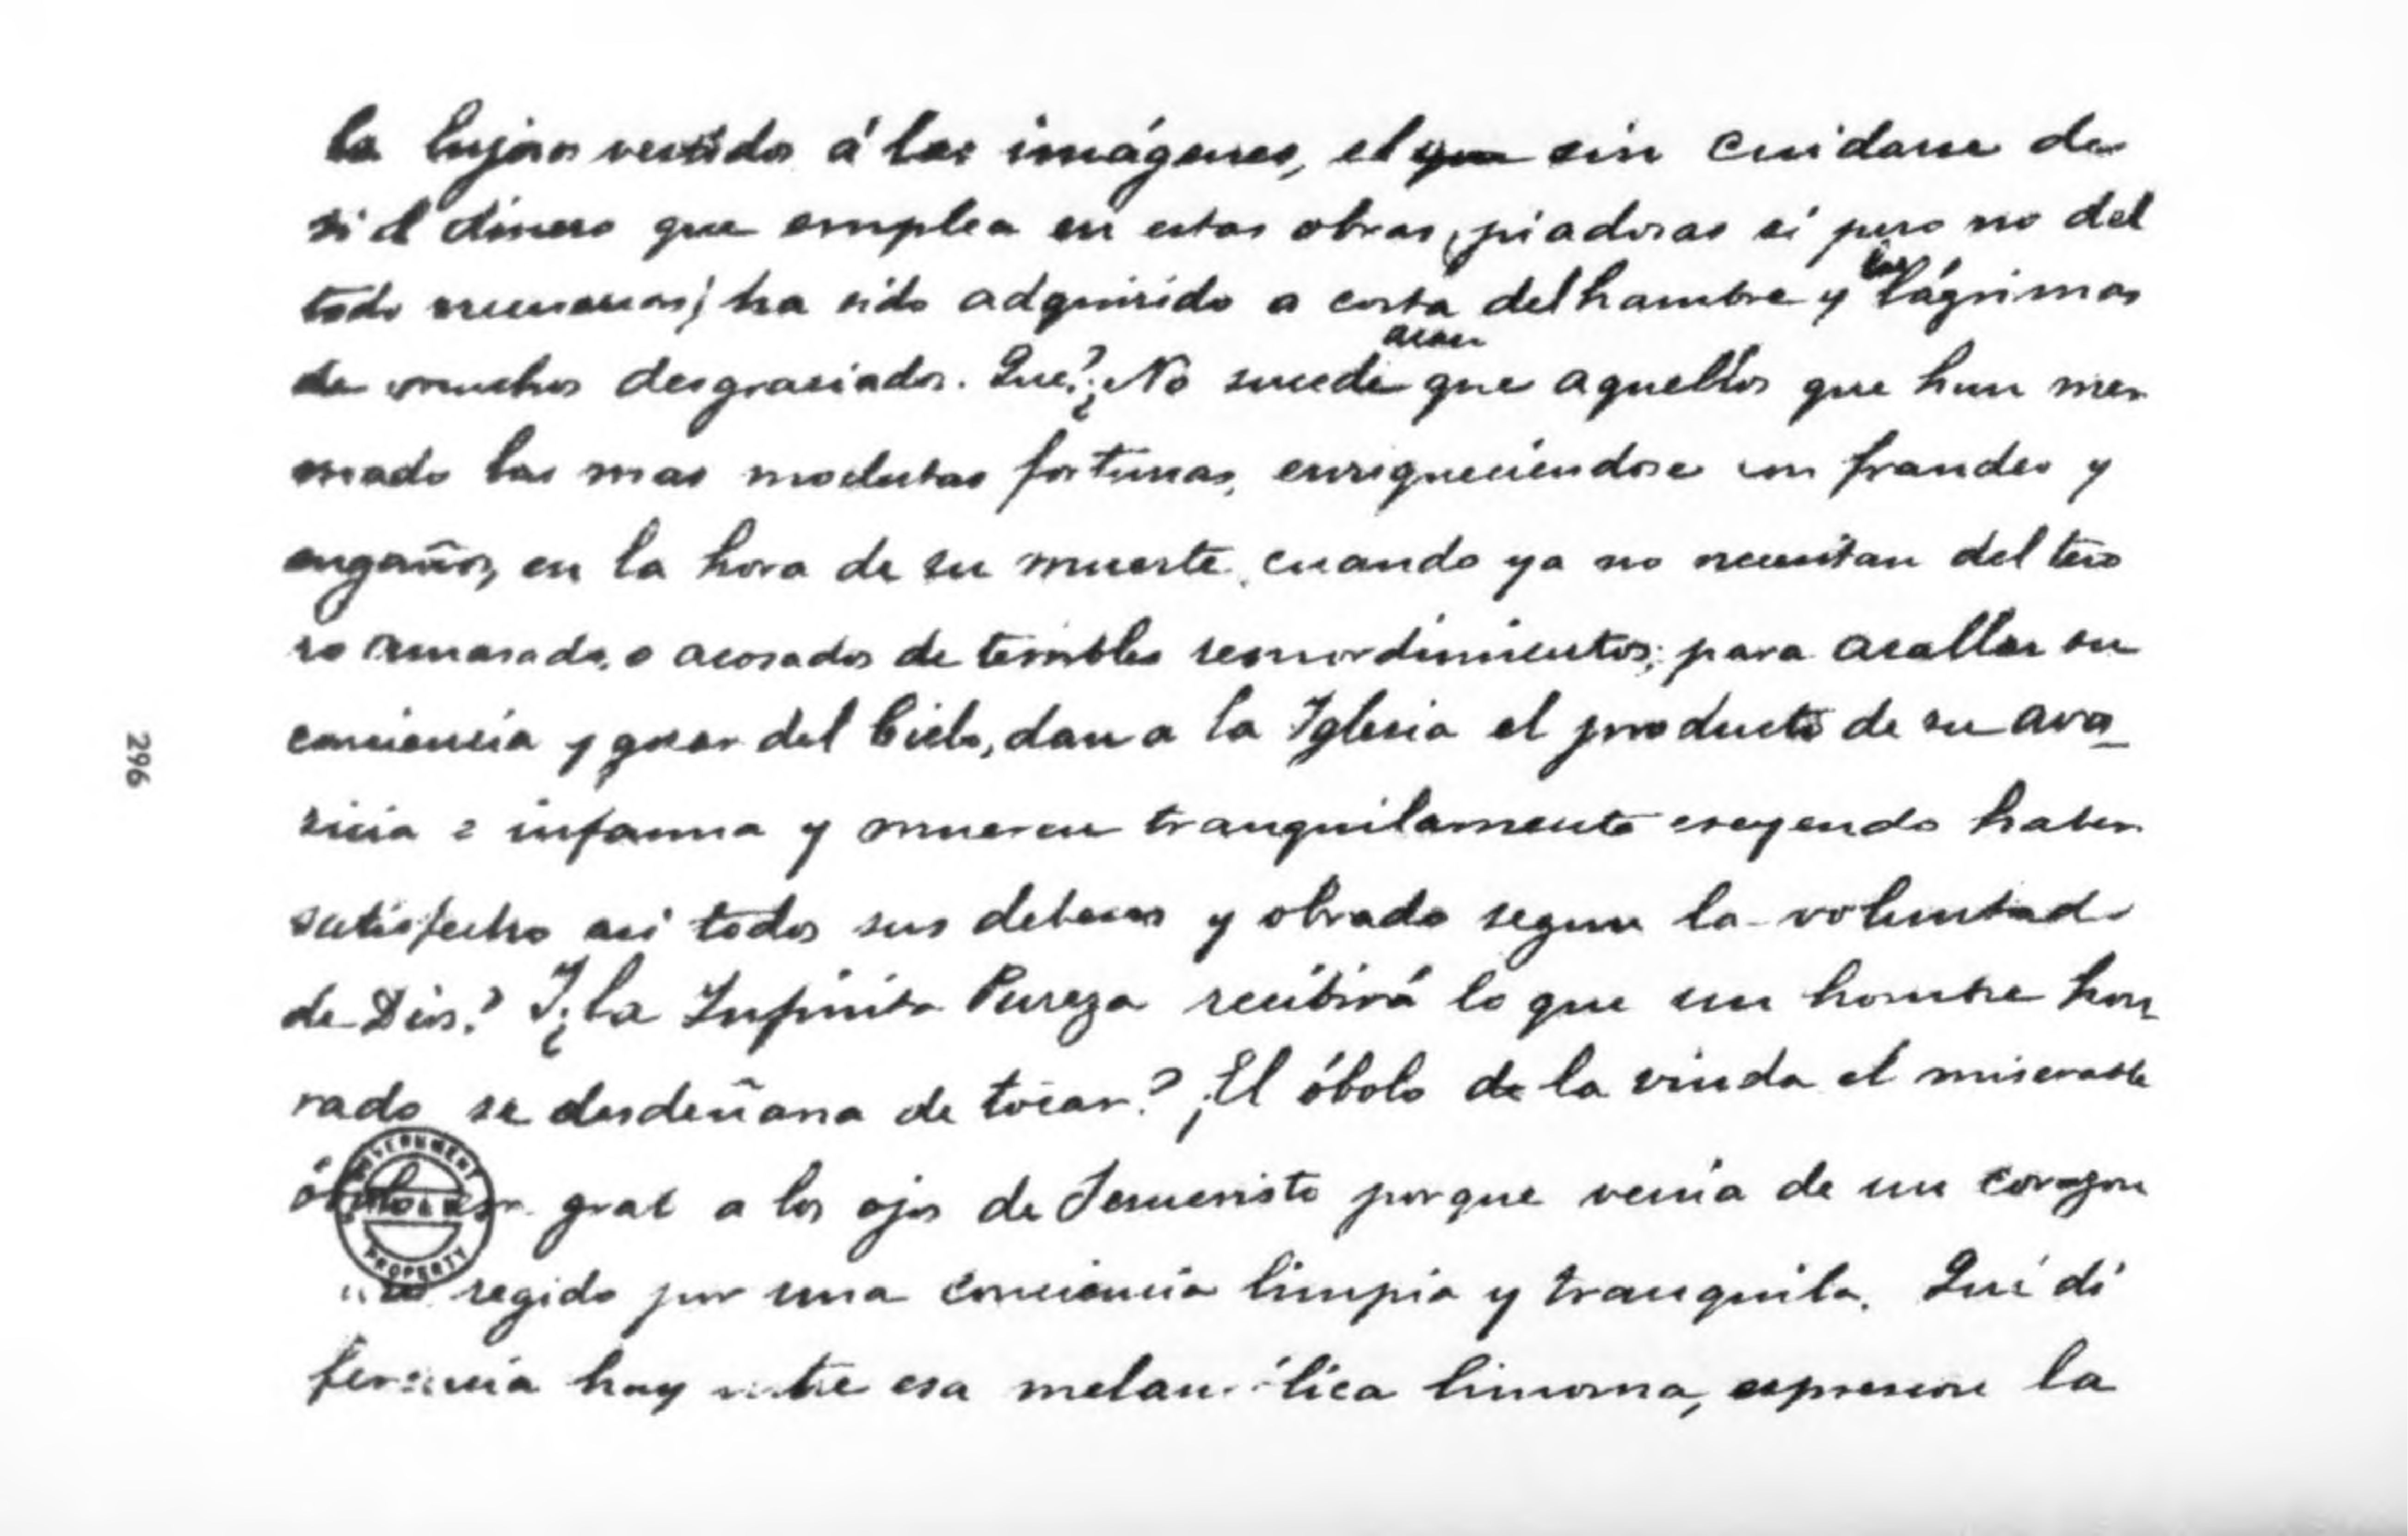 la lujos vestidos á las imágenes, el que sin cuidarse de
si el dinero que emplea en estas obras, piadosas sí pero no del
todo necesarias; ha sido adquirido a costa del hambre y las lágrimas
de muchos desgraciados. Que? ¿No sucede acaso que aquellos que han mer
mado las mas modestas fortunas, enriqueciendose con fraudes y
engaños, en la hora de su muerte, cuando ya no necesitan del teso
ro amasado, o acosados de terribles remordimientos; para acallar su
conciencia y gozar del Cielo, dan a la Iglesia el producto de su ava_
ricia e infamia y mueren tranquilamente creyendo haber
satisfecho asi todos sus deberes y obrado segun la voluntad
de Dios? I ¿la Infinita Pureza recibirá lo que un hombre hon_
rado se desdeñaria de tocar? ¡El óbolo de la viuda el miserable
grat a los ojos de Jesucristo porque venía de un corazon
regido por una conciencia limpia y tranquila. Qué di
ferencia hay entre esa melancólica limosna, espresion la
296
GOVERNMENT
PROPERTY